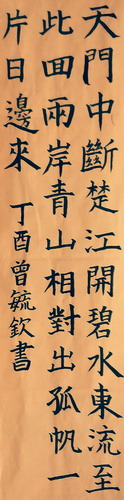 天門中斷楚江開碧水東流至
此回兩岸青山相對出孤帆一
片日邊來丁酉曾毓欽書